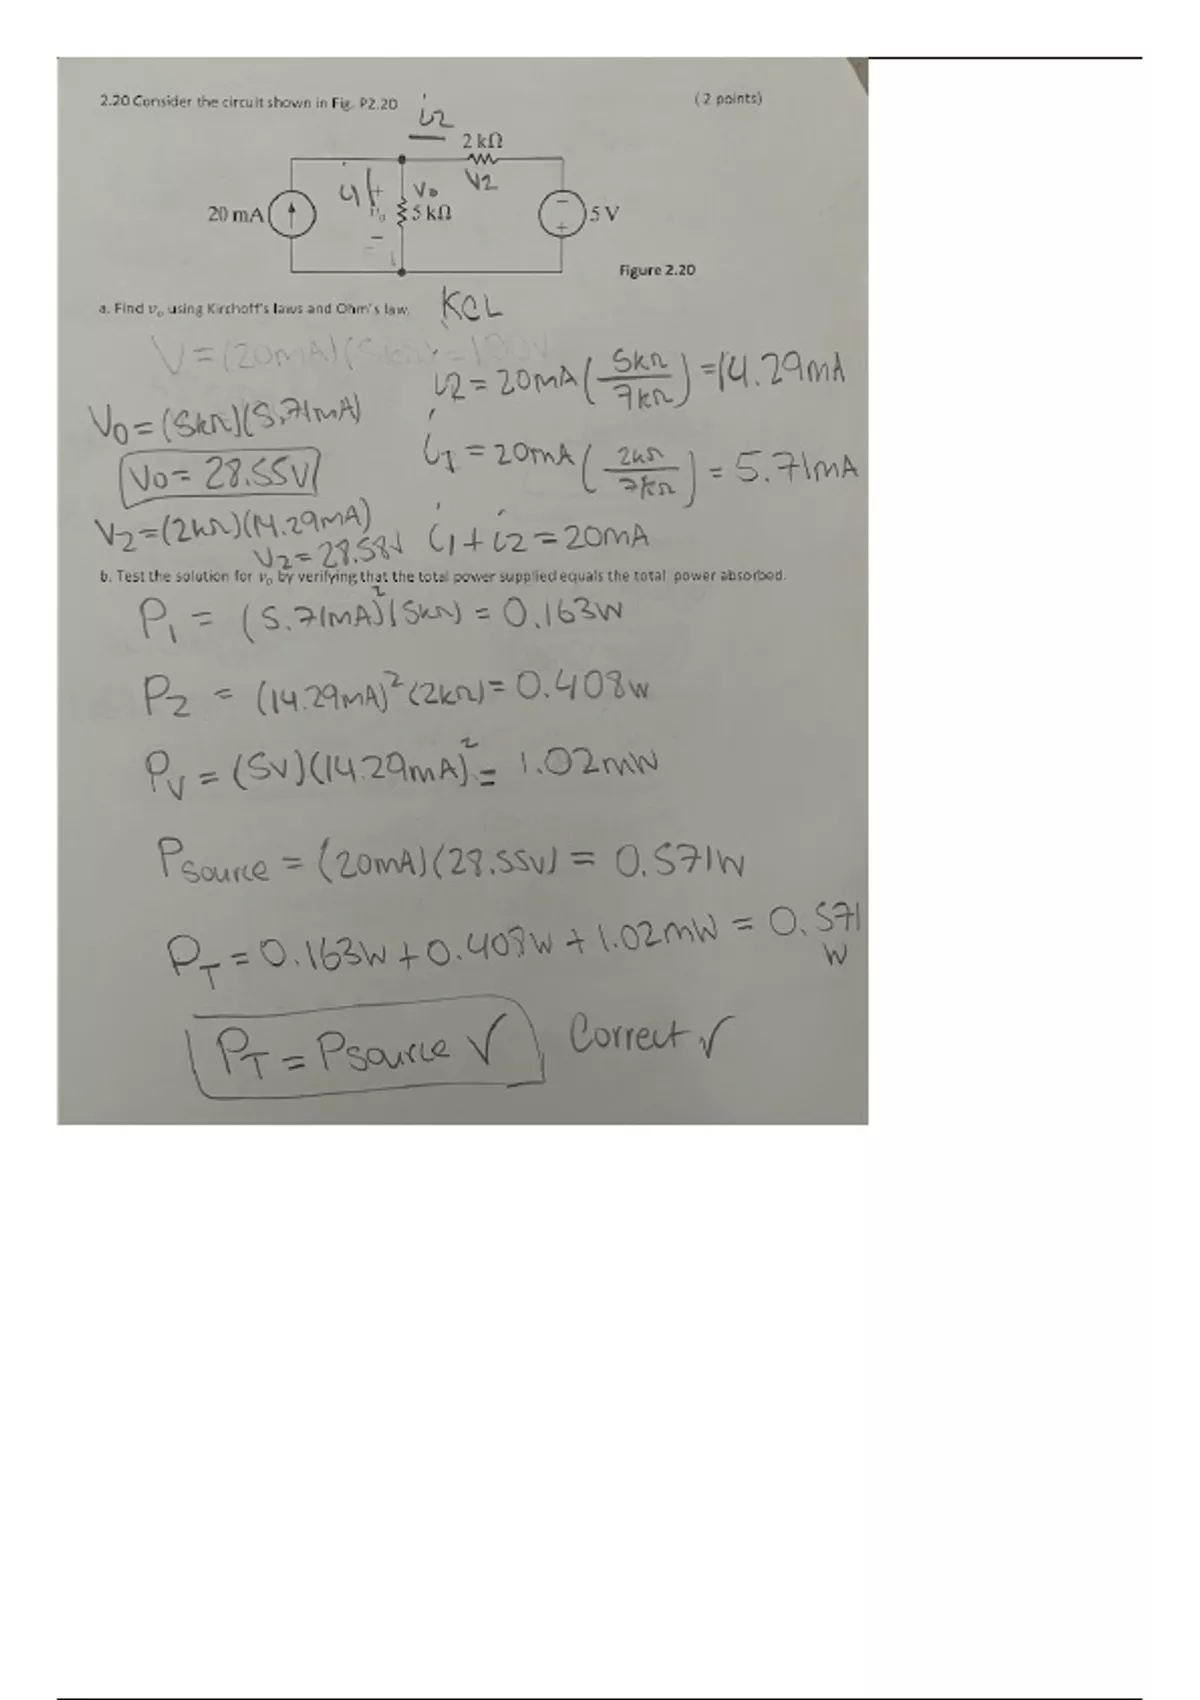 2.20 Consider the circuit shown in Fig. P2.20 (2 points)
i2
2 kΩ
V2
20 mA
i1
+
Vo
vo
5 kΩ
−
−
+
5 V
Figure 2.20
a. Find vo using Kirchoff's laws and Ohm's law. KCL
V = (20mA)(5kΩ) = 100V
i2 = 20mA (5kΩ/7kΩ) = 14.29mA
Vo = (5kΩ)(5.71mA)
i1 = 20mA (2kΩ/7kΩ) = 5.71mA
Vo = 28.55V
V2 = (2kΩ)(14.29mA)
V2 = 28.58V
i1 + i2 = 20mA
b. Test the solution for vo by verifying that the total power supplied equals the total power absorbed.
P1 = (5.71mA)²(5kΩ) = 0.163W
P2 = (14.29mA)²(2kΩ) = 0.408W
PV = (5V)(14.29mA)² = 1.02mW
Psource = (20mA)(28.55V) = 0.571W
PT = 0.163W + 0.408W + 1.02mW = 0.571
W
PT = Psource ✓ Correct ✓